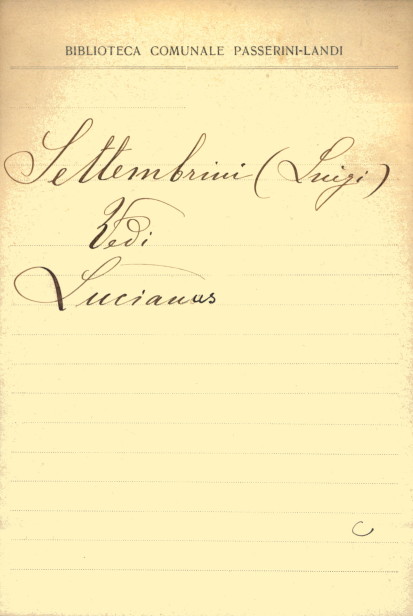 BIBLIOTECA COMUNALE PASSERINI-LANDI
Settembrini (Luigi)
Vedi
Lucianus